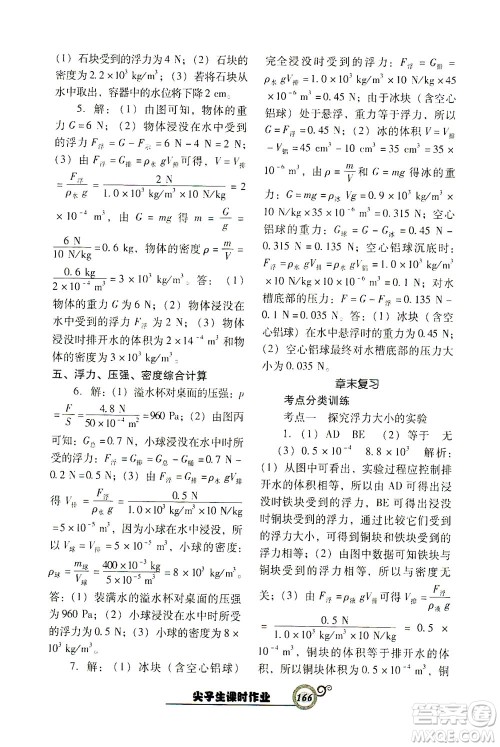 (1) 石块受到的浮力为 4 N (2) 石块的
密度为 2.2×10³ kg/m³ (3) 若将石块从
水中取出,容器中的水位将下降 2 cm。
5. 解:(1) 由图可知,物体的重力
G=6 N;(2) 由图可知,物体浸没在水中受到
的浮力:F浮=G-F示=6 N-4 N=2 N;
(3) 由 F浮=G排=ρ水gV排可得,V=V排
=F浮/ρ水g=2 N/1.0×10³ kg/m³×10 N/kg=2
×10⁻⁴ m³,由 G=mg 可得,m=G/g=
6 N/10 N/kg=0.6 kg,物体的密度:ρ=m/V=
0.6 kg/2×10⁻⁴ m³=3×10³ kg/m³。答:(1)
物体的重力 G 为 6 N;(2) 物体浸没在
水中受到的浮力 F浮为 2 N;(3) 物体浸没
时排开水的体积为 2×10⁻⁴ m³,物体的
密度为 3×10³ kg/m³。
五、浮力、压强、密度综合计算
6. 解:(1) 溢水杯对桌面的压强:p
=F/S=4.8 N/50×10⁻⁴ m²=960 Pa;(2) 由图丙
可知:G总=0.7 N,小球浸没在水中受到
的浮力:F浮=G排=G总-G桶=0.7 N
-0.2 N=0.5 N;(3) 由 F浮=G排=ρ水gV排
得 V排=F浮/ρ水g=0.5 N/1.0×10³ kg/m³×10 N/kg
=5×10⁻⁵ m³,因为小球浸没在水中,所
以 V球=V排=5×10⁻⁵ m³,小球的密度:
ρ球=m球/V球=0.4 kg/5×10⁻⁵ m³=8×10³ kg/m³。
答:(1) 装满水的溢水杯对桌面的压强
为 960 Pa;(2) 小球浸没在水中时受到
的浮力为 0.5 N;(3) 小球的密度为 8×
10³ kg/m³。
7. 解:(1) 冰块(含空心铝球)
完全浸没时受到的浮力:F浮=G排=
ρ水gV排=1.0×10³ kg/m³×10 N/kg×45
×10⁻⁶ m³=0.45 N;由于冰块(含空心
铝球)处于悬浮,重力等于浮力,所以
G=F浮=0.45 N;(2) 冰的体积
V=35 cm³,由 ρ=m/V和 G=mg 可得冰的
重力:G=mg=ρ冰Vg=0.9×10³ kg/m³×
10 N/kg×35×10⁻⁶ m³=0.315 N,空心
铝球的重力:G铝=G-G冰=0.45 N
-0.315 N=0.135 N;空心铝球沉底时:
F浮=ρ水gV铝=1.0×10³ kg/m³×10
N/kg×10×10⁻⁶ m³=0.1 N;所以,对水
槽底部的压力:F=G铝-F浮=0.135 N
-0.1 N=0.035 N。答:(1) 冰块(含空
心铝球)悬浮时的重力为 0.45 N;
(2) 空心铝球最终对水槽底部的压力大
小为 0.035 N。
章末复习
考点分类训练
考点一 探究浮力大小的实验
1. (1) AD BE (2) 等于 无
(3) 0.5 1×10⁻⁴ 8.8×10³ 解析:
(1) 从图中可以看出,实验过程应控制排
开水的体积相同,从 AD 可以得出浸没
时铁块受到的浮力,BE 可以得出浸没
时铜块受到的浮力,从而得出铁块受到
的浮力与铜块受到的浮力的大小关系为
浮力相等;(2) 由图中数据可知铁块与铜
块受到的浮力相等,即浮力与物体密度无
关;(3) 由图中可以得出铜块的浮力为
1 N,铜块的体积等于排开水的体积,即
尖子生课时作业
166
答案圈